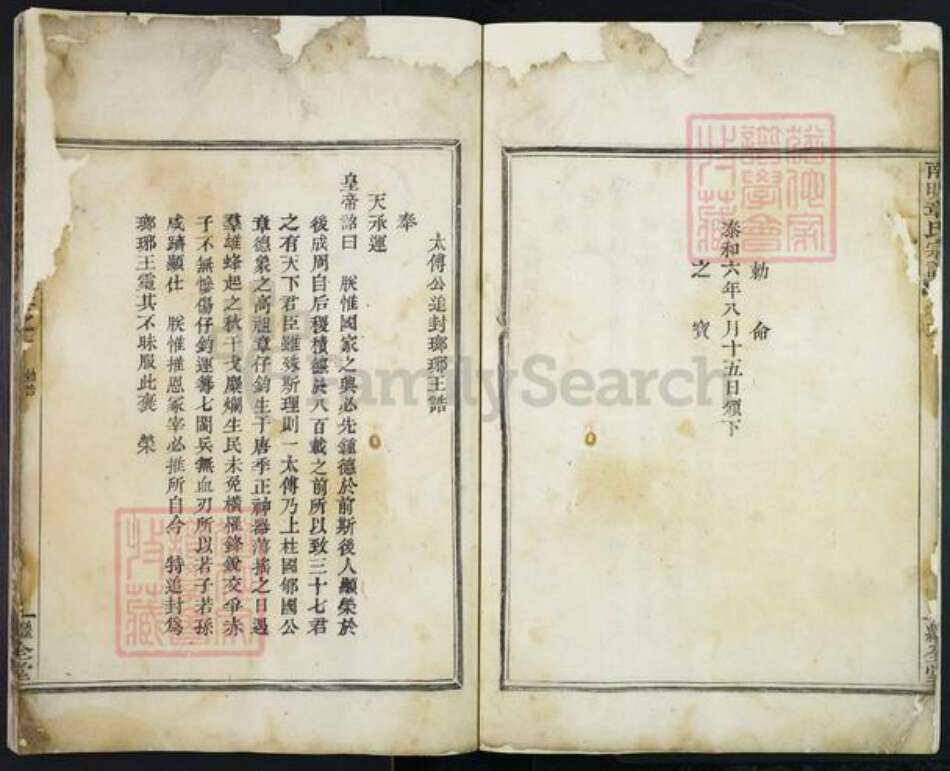 勅命
泰和六年八月十五日頒下
之寶
太傅公追封瑯琊王誥
奉
天承運
皇帝詔曰 朕惟國家之興必先鍾德於前斯後人顯榮於
後成周自后稷積德於八百載之前所以致三十七君
之有天下君臣雖殊斯理則一太傅乃上柱國郇國公
章德象之高祖章仔鈞生于唐季正神器蕩搖之日遇
羣雄蜂起之秋干戈麋爛生民未免橫罹鋒鏑交爭赤
子不無慘傷仔鈞運籌七閩兵無血刃所以若子若孫
咸躋顯仕 朕惟推恩冢宰必推所自今 特追封爲
瑯琊王靈其不昧服此褒 榮
全堂
FamilySearch